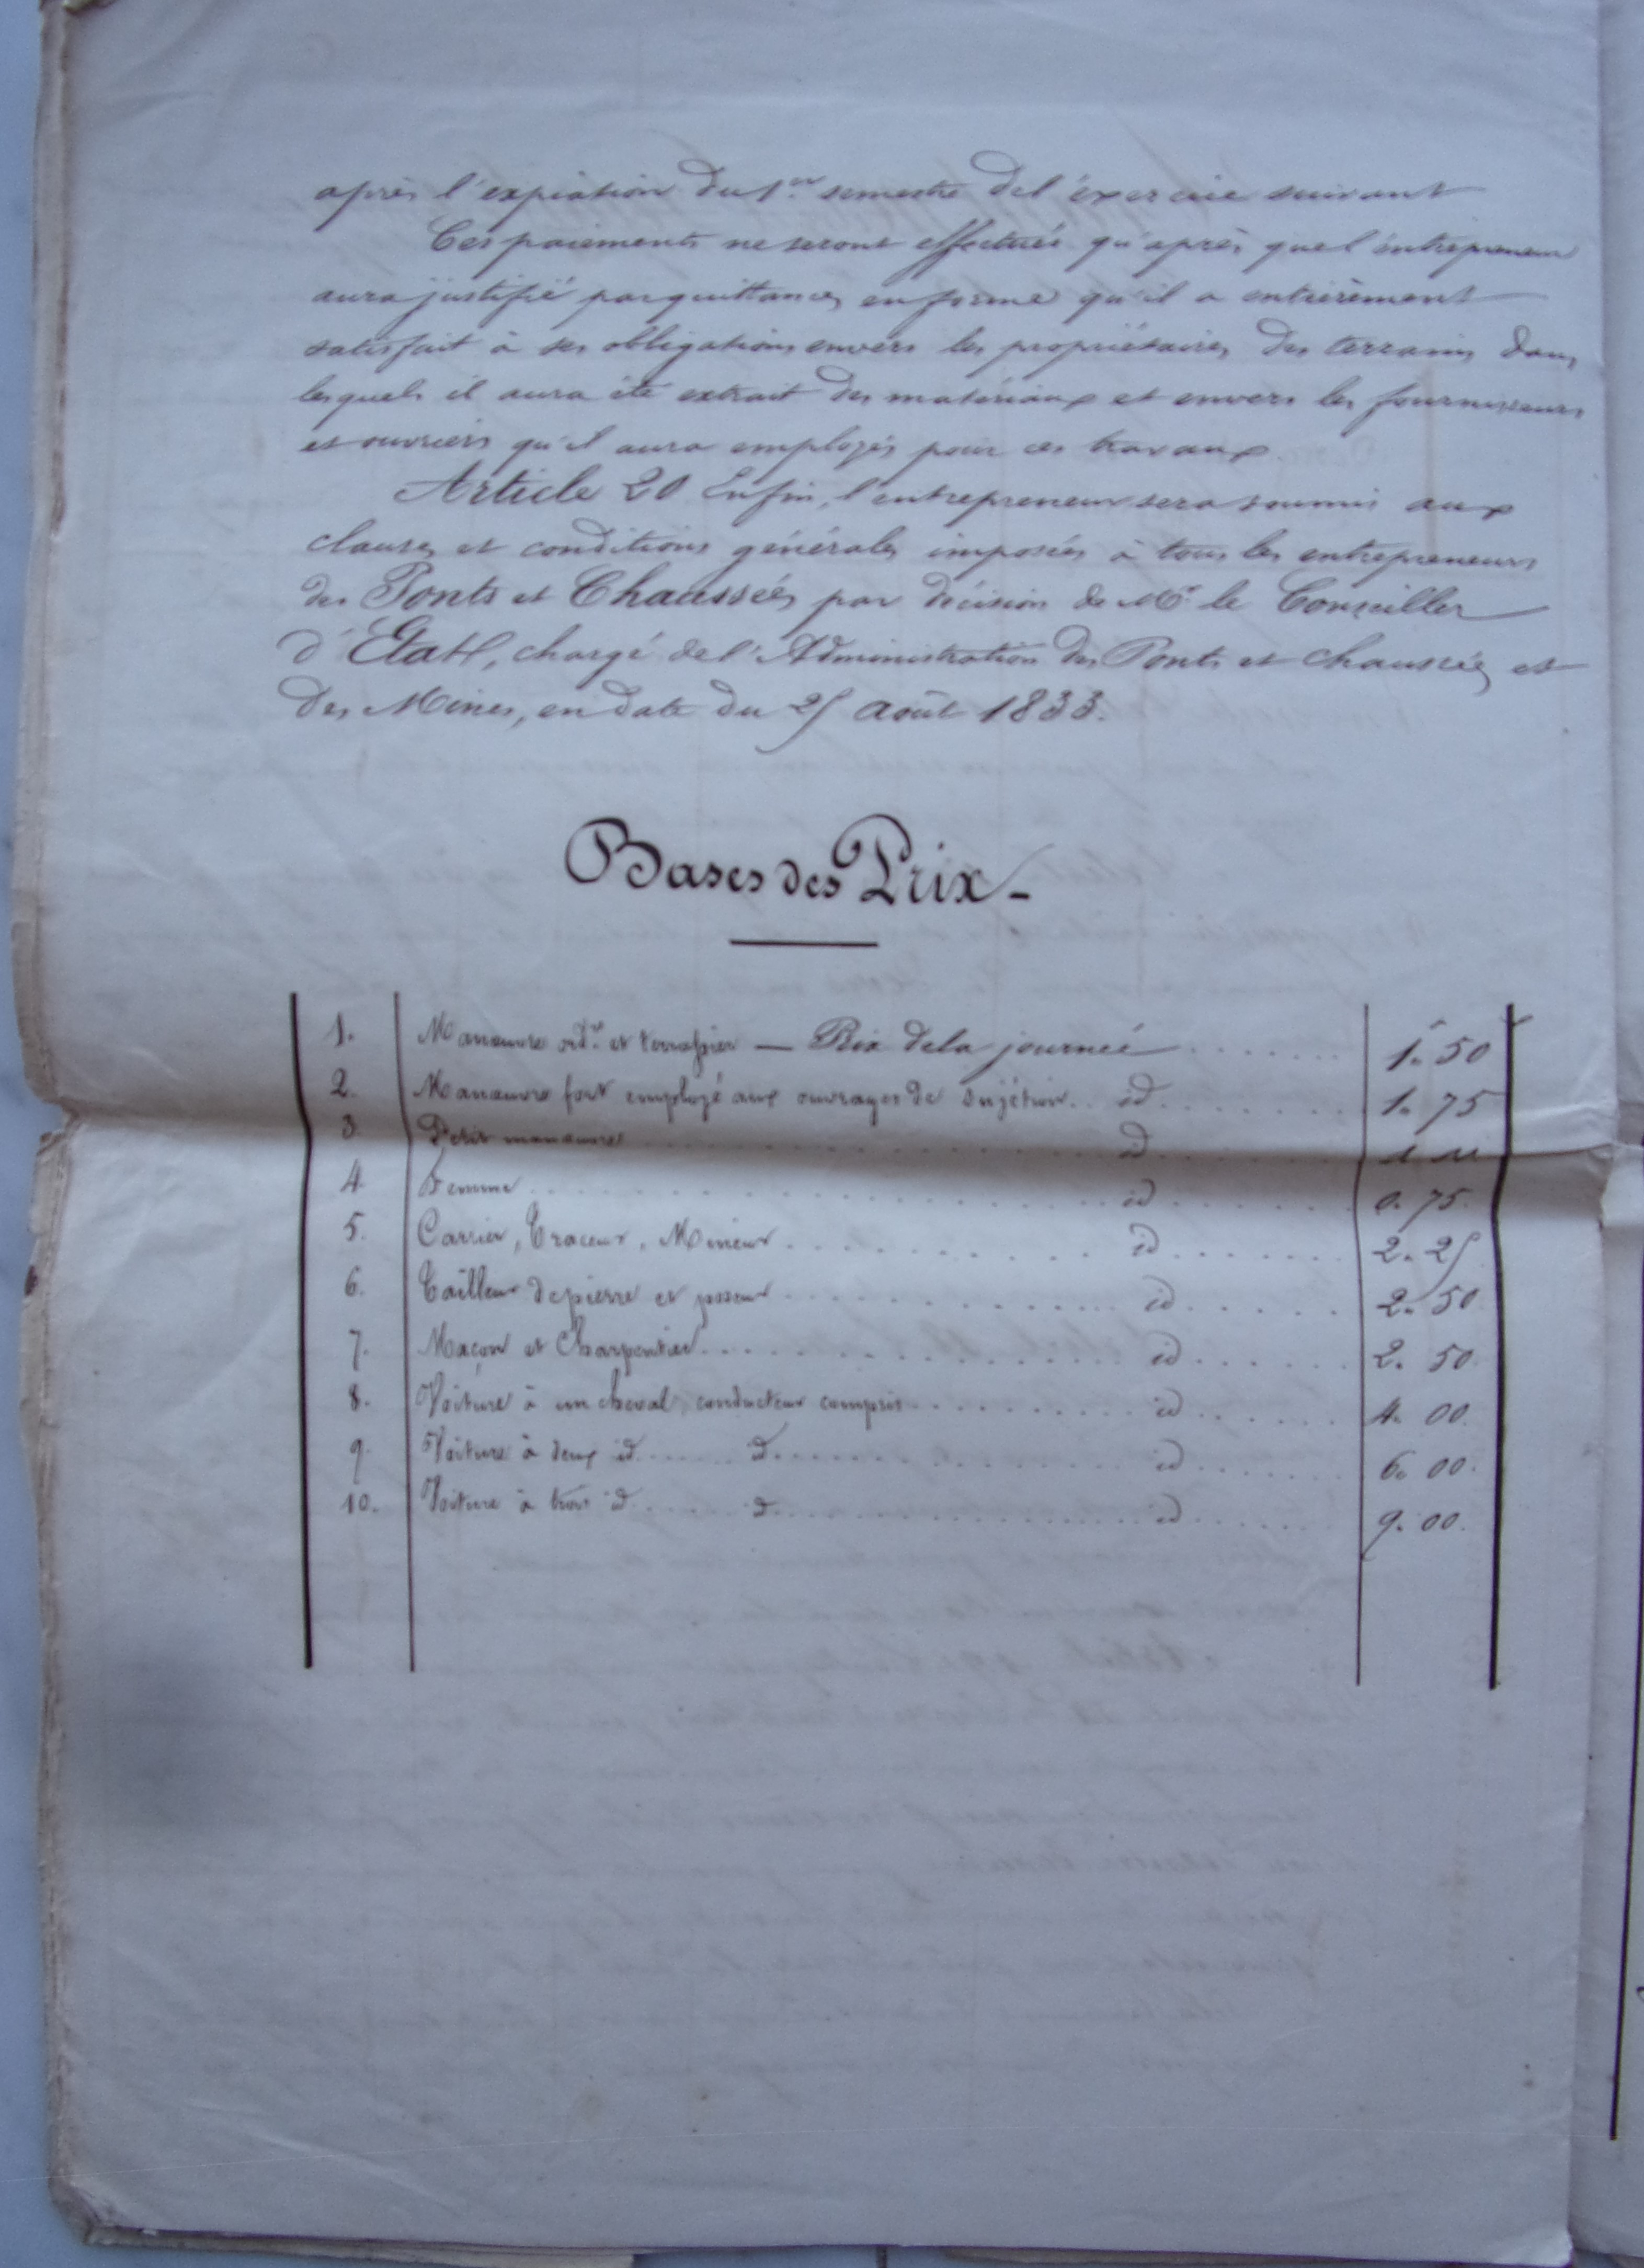 après l'expiation du 1er semestre de l'éxercice suivant
Ces paiements ne seront effectués qu'après que l'entrepreneur
aura justifié par quittances en forme qu'il a entièrement
satisfait à ses obligations envers les propriétaires des terrains dans
lesquels il aura été extrait des matériaux et envers les fournisseurs
et ouvriers qu'il aura employés pour ces travaux.
Article 20 Enfin, l'entrepreneur sera soumis aux
clauses et conditions générales imposées à tous les entrepreneurs
des Ponts et Chaussées par décision de Mr le Conseiller
d'État, chargé de l'Administration des Ponts et chaussées et
des Mines, en date du 25 août 1833.
Bases des Prix -
1. Manœuvre ordre et terrassier — Prix de la journée ....... 1. 50
2. Manœuvre fort employé aux ouvrages de sujétion.. id ........ 1. 75
3. Petit manœuvre ........ id ........
4. Femme ........ id ........ 0. 75.
5. Carrier, Traceur, Mineur ........ id ....... 2. 25
6. Tailleur de pierre et poseur ........ id ...... 2. 50
7. Maçon et Charpentier ........ id ...... 2. 50
8. Voiture à un cheval, conducteur compris ........ id ...... 4. 00
9. Voiture à deux id ...... id ........ id ....... 6. 00.
10. Voiture à trois id ...... id ........ id ...... 9. 00.